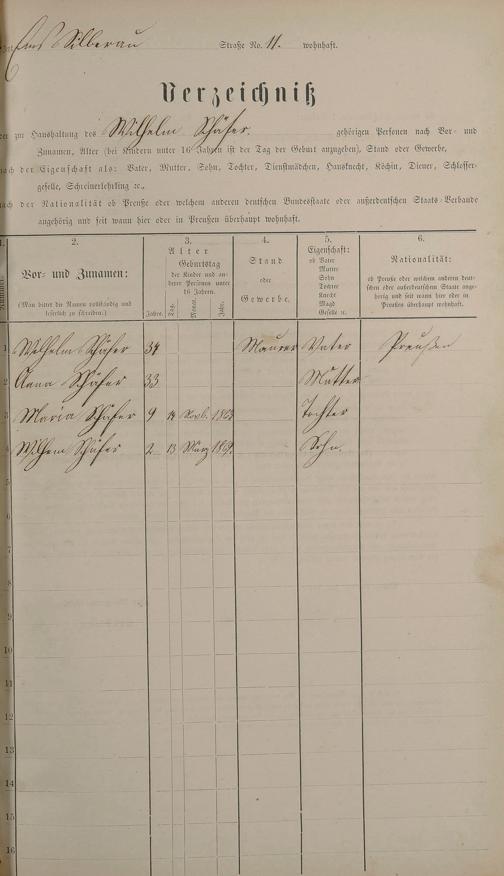 Ems Silberau Straße No. 11. wohnhaft.
Verzeichniß
der zur Haushaltung des Wilhelm Schäfer. gehörigen Personen nach Vor- und
Zunamen, Alter (bei Kindern unter 16 Jahren ist der Tag der Geburt anzugeben), Stand oder Gewerbe,
nach der Eigenschaft als: Vater, Mutter, Sohn, Tochter, Dienstmädchen, Hausknecht, Köchin, Diener, Schlosser-
geselle, Schreinerlehrling ꝛc.,
nach der Nationalität ob Preuße oder welchem anderen deutschen Bundesstaate oder außerdeutschen Staats-Verbande
angehörig und seit wann hier oder in Preußen überhaupt wohnhaft.
1. 2. 3. 4. 5. 6.
Nummer
Vor- und Zunamen:
(Man bittet die Namen vollständig und
leserlich zu schreiben.)
Alter
Jahre.
Geburtstag
der Kinder und an-
derer Personen unter
16 Jahren.
Tag. Monat. Jahr.
Stand
oder
Gewerbe.
Eigenschaft:
ob Vater
Mutter
Sohn
Tochter
Knecht
Magd
Geselle ꝛc.
Nationalität:
ob Preuße oder welchem anderen deut-
schen oder außerdeutschen Staate ange-
hörig und seit wann hier oder in
Preußen überhaupt wohnhaft.
1 Wilhelm Schäfer 34 Maurer Vater Preußen
2 Anna Schäfer 33 Mutter
3 Maria Schäfer 9 14 Novb. 1863 Tochter
4 Wilhem Schäfer 2 13 März Sohn.
5
6
7
8
9
10
11
12
13
14
15
16